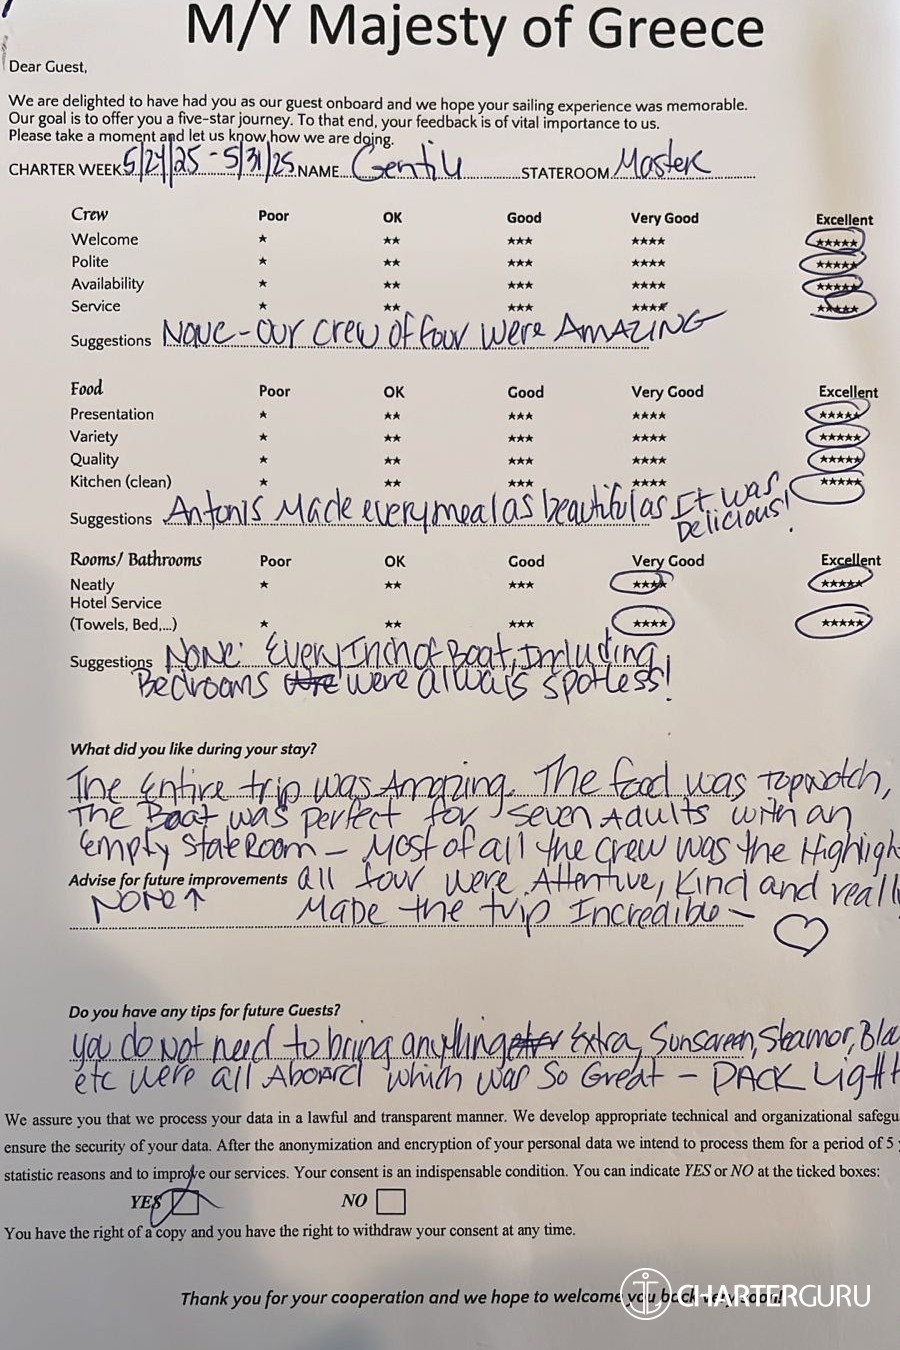 M/Y Majesty of Greece
Dear Guest,
We are delighted to have had you as our guest onboard and we hope your sailing experience was memorable.
Our goal is to offer you a five-star journey. To that end, your feedback is of vital importance to us.
Please take a moment and let us know how we are doing.
CHARTER WEEK 5/24/25 - 5/31/25 NAME STATEROOM Master
Crew Poor OK Good Very Good Excellent
Welcome ★ ★★ ★★★ ★★★★ ★★★★★
Polite ★ ★★ ★★★ ★★★★ ★★★★★
Availability ★ ★★ ★★★ ★★★★ ★★★★★
Service ★ ★★ ★★★ ★★★★ ★★★★★
Suggestions None - Our crew of four were AMAZING
Food Poor OK Good Very Good Excellent
Presentation ★ ★★ ★★★ ★★★★ ★★★★★
Variety ★ ★★ ★★★ ★★★★ ★★★★★
Quality ★ ★★ ★★★ ★★★★ ★★★★★
Kitchen (clean) ★ ★★ ★★★ ★★★★ ★★★★★
Suggestions Antonis Made every meal as beautiful as It was
Delicious!
Rooms/ Bathrooms Poor OK Good Very Good Excellent
Neatly ★ ★★ ★★★ ★★★★ ★★★★★
Hotel Service
(Towels, Bed,...) ★ ★★ ★★★ ★★★★ ★★★★★
Suggestions NONE: Every Inch of Boat, Including
Bedrooms were always spotless!
What did you like during your stay?
The Entire trip was Amazing. The food was topnotch,
The Boat was perfect for seven Adults with an
empty StateRoom - Most of all the crew was the Highligh
Advise for future improvements all four were Attentive, Kind and reall
NONE ↑ Made the trip Incredible - ♡
Do you have any tips for future Guests?
you do not need to bring anything Extra, Sunscreen, Steamor,
etc were all Aboard which was So Great - PACK Light
We assure you that we process your data in a lawful and transparent manner. We develop appropriate technical and organizational safegu
ensure the security of your data. After the anonymization and encryption of your personal data we intend to process them for a period of 5
statistic reasons and to improve our services. Your consent is an indispensable condition. You can indicate YES or NO at the ticked boxes:
YES NO
You have the right of a copy and you have the right to withdraw your consent at any time.
Thank you for your cooperation and we hope to welcome you back very soon!
CHARTERGURU